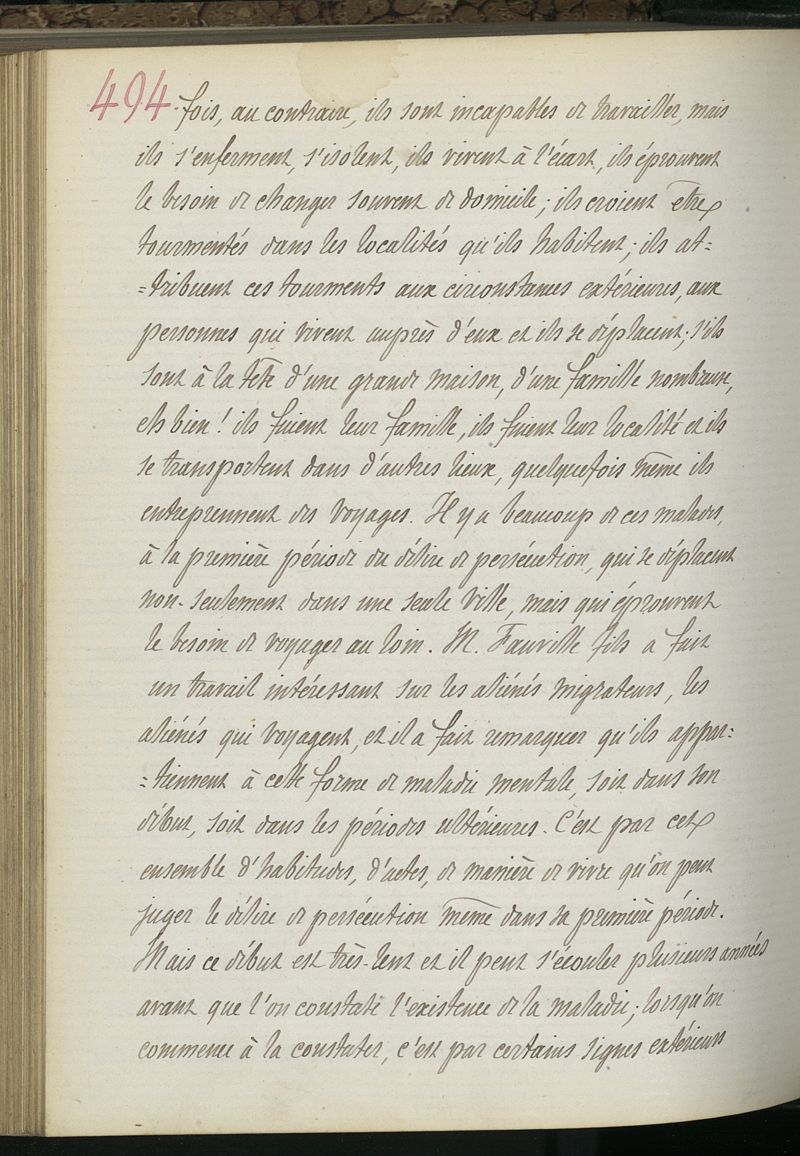 494. fois, au contraire, ils sont incapables de travailler, mais
ils s'enferment, s'isolent, ils vivent à l'écart, ils éprouvent
le besoin de changer souvent de domicile; ils croient être
tourmentés dans les localités qu'ils habitent; ils at=
=tribuent ces tourments aux circonstances extérieures, aux
personnes qui vivent auprès d'eux et ils se déplacent; s'ils
sont à la tête d'une grande maison, d'une famille nombreuse,
eh bien! ils fuient leur famille, ils fuient leur localité et ils
se transportent dans d'autres lieux, quelquefois même ils
entreprennent des voyages. Il y a beaucoup de ces malades,
à la première période du délire de persécution, qui se déplacent
non-seulement dans une seule ville, mais qui éprouvent
le besoin de voyager au loin. M. Fauville fils a fait
un travail intéressant sur les aliénés migrateurs, les
aliénés qui voyagent, et il a fait remarquer qu'ils appar=
=tiennent à cette forme de maladie mentale, soit dans son
début, soit dans les périodes ultérieures. C'est par cet
ensemble d'habitudes, d'actes, de manière de vivre qu'on peut
juger le délire de persécution même dans sa première période.
Mais ce début est très-lent et il peut s'écouler plusieurs années
avant que l'on constate l'existence de la maladie; lorsqu'on
commence à la constater, c'est par certains signes extérieurs